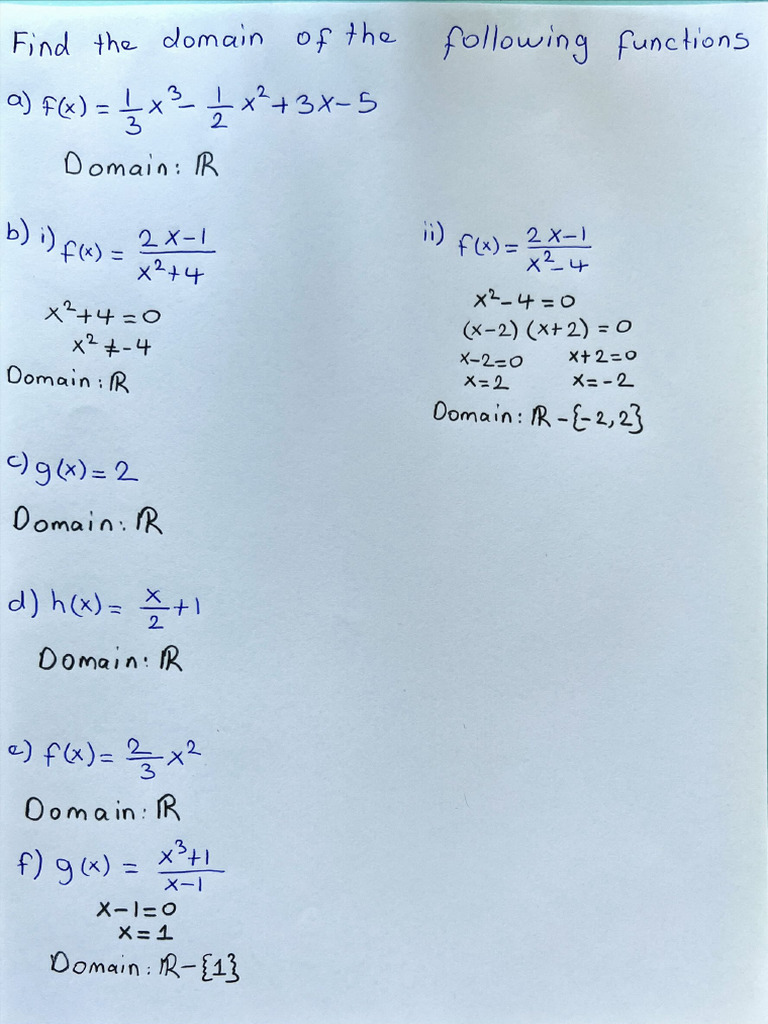 Find the domain of the following functions
a) f(x) = 1/3 x³ - 1/2 x² + 3x - 5
Domain: ℝ
b) i) f(x) = (2x-1)/(x²+4)
x²+4=0
x² ≠ -4
Domain: ℝ
ii) f(x) = (2x-1)/(x²-4)
x²-4=0
(x-2)(x+2)=0
x-2=0 x+2=0
x=2 x=-2
Domain: ℝ-{-2,2}
c) g(x)=2
Domain: ℝ
d) h(x)= x/2 +1
Domain: ℝ
e) f(x)= 2/3 x²
Domain: ℝ
f) g(x) = (x³+1)/(x-1)
x-1=0
x=1
Domain: ℝ-{1}